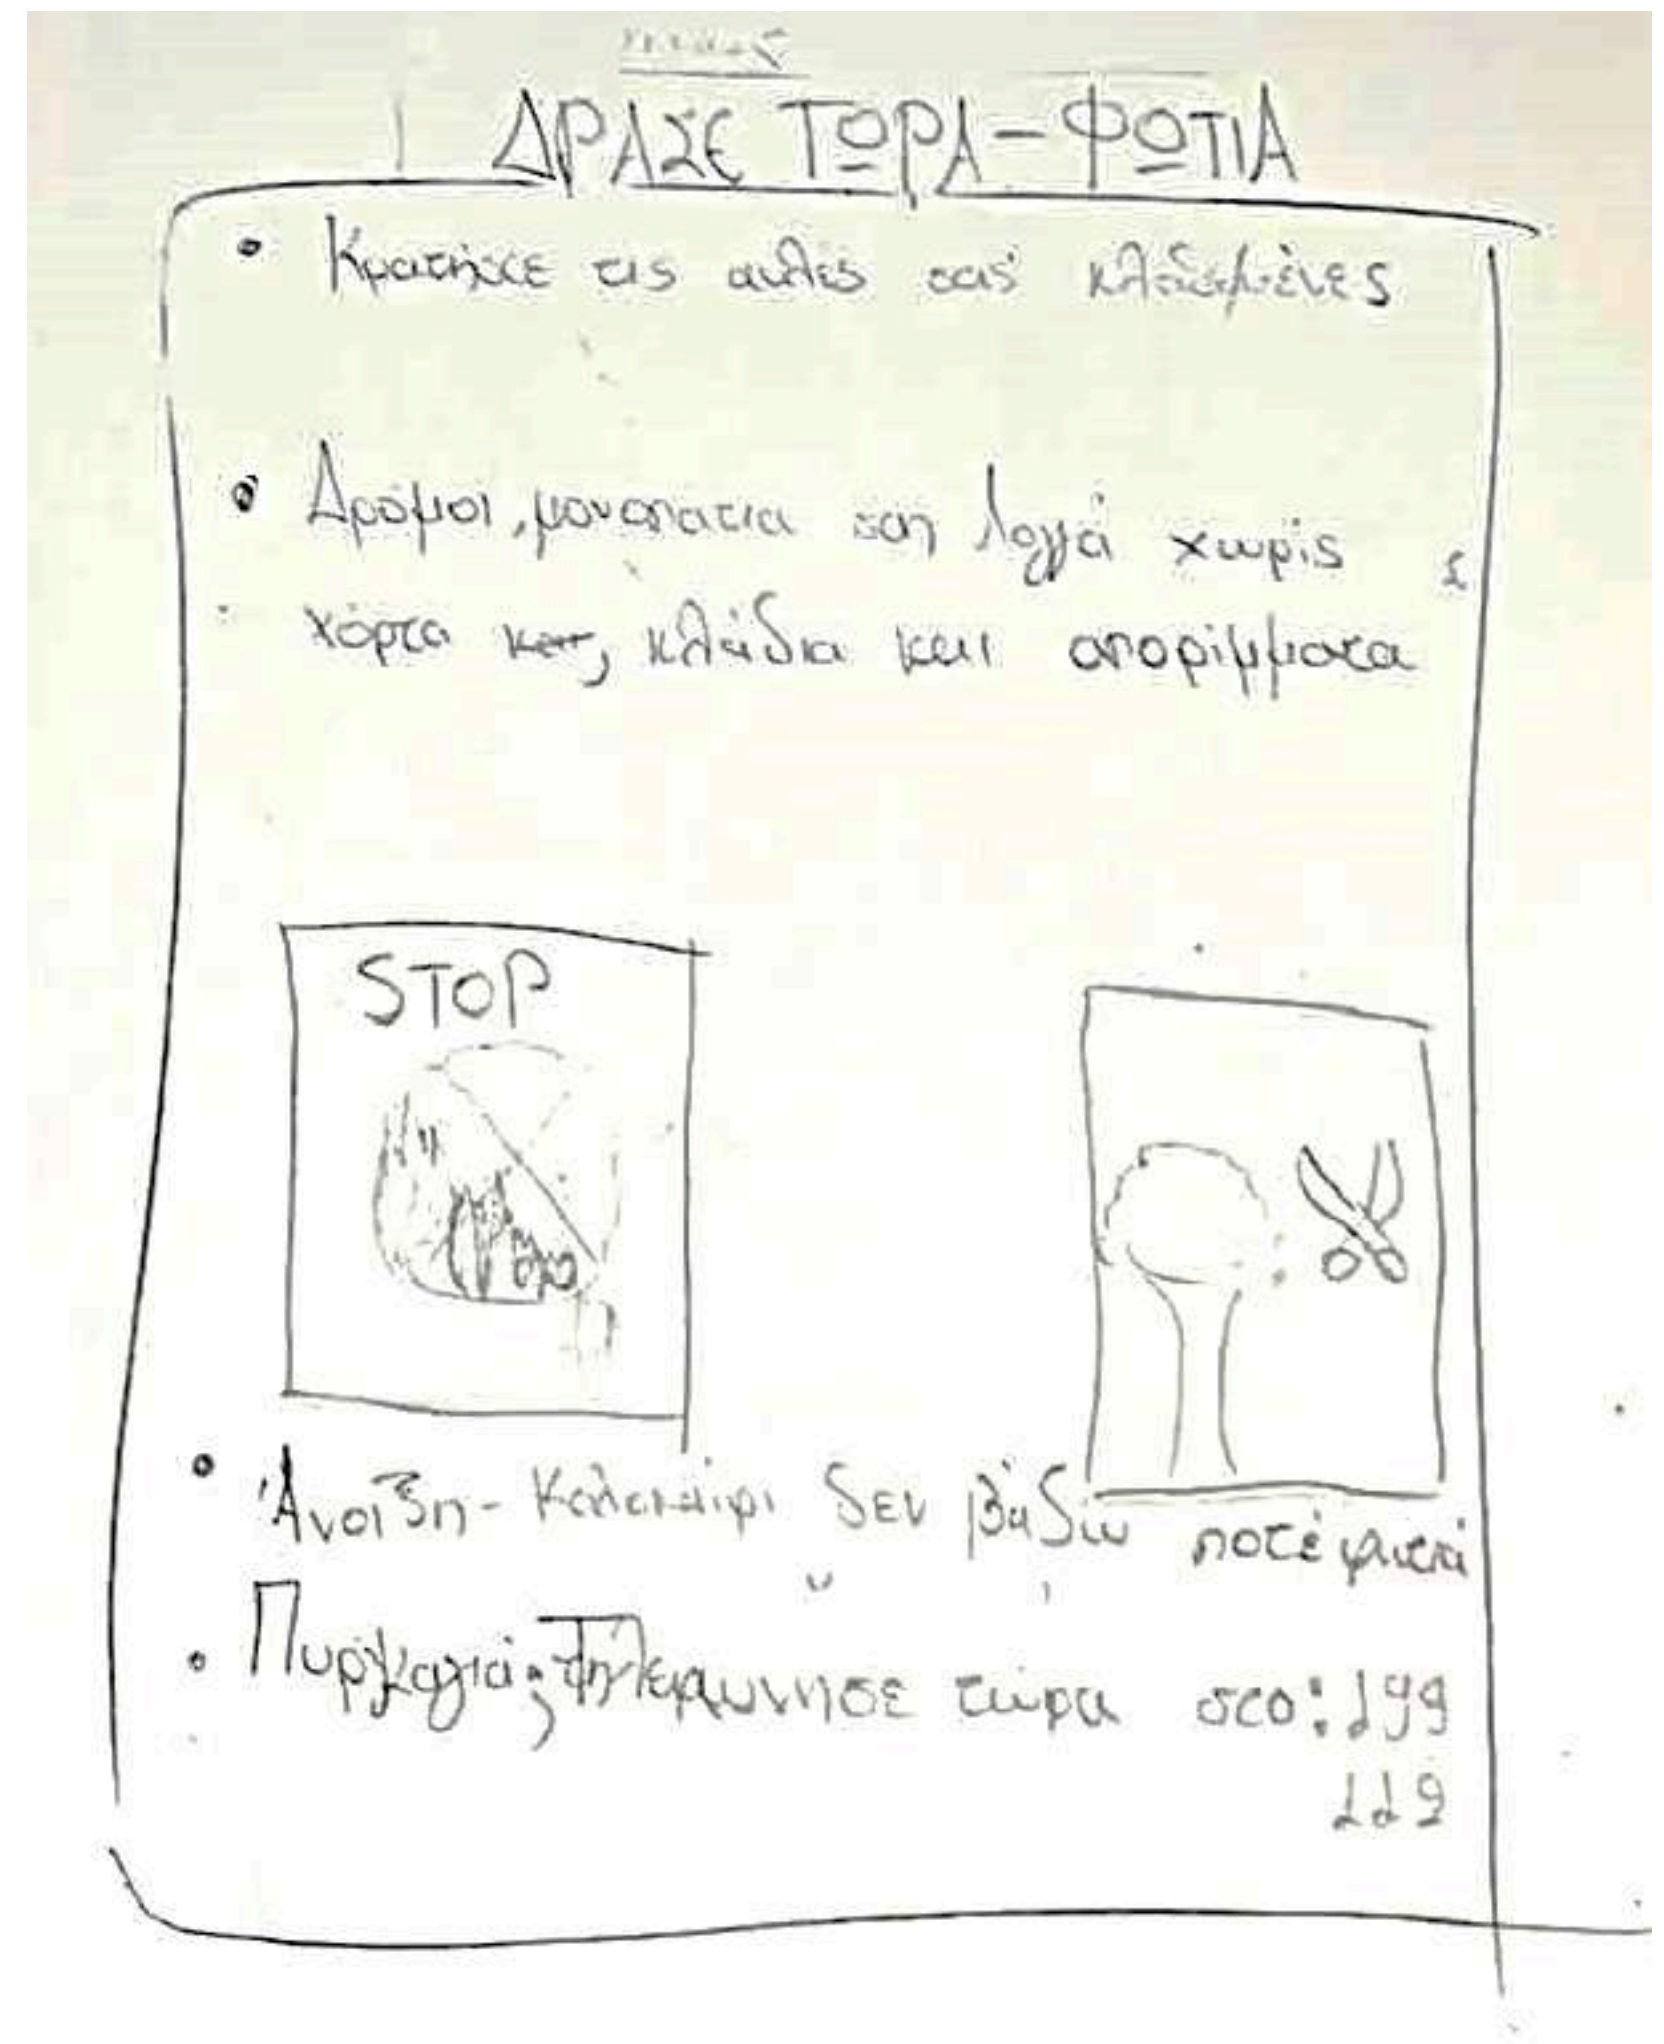 ΔΡΑΣΕ ΤΩΡΑ - ΦΩΤΙΑ
• Κρατήστε τις αυλές σας κλαδεμένες
• Δρόμοι, μονοπάτια στη λογγά χωρίς
χόρτα, κλάδια και απορίμματα
STOP
• Άνοιξη - Καλοκαίρι δεν βάζω ποτέ φωτιά
• Πυρκαγιά; Τηλεφώνησε τώρα στο: 199
112